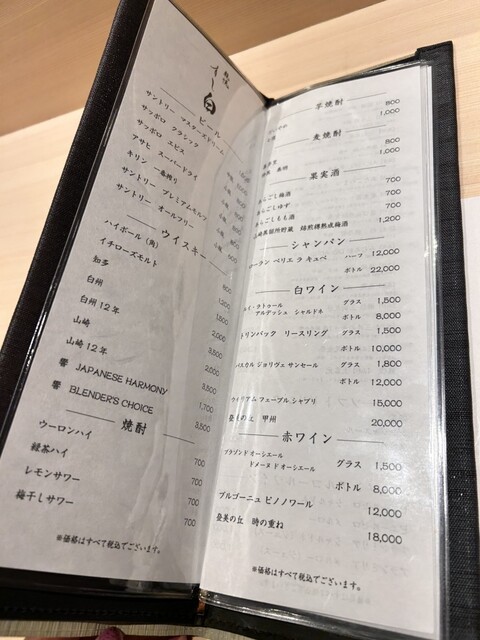 白
ビール
サントリー マスターズドリーム
サッポロ クラシック
サッポロ ヱビス
アサヒ スーパードライ
キリン 一番搾り
サントリー プレミアムモルツ
サントリー オールフリー
ウイスキー
ハイボール (角) 800
イチローズモルト 1,200
知多 1,500
白州 2,000
白州 12年 3,500
山崎 2,000
山崎 12年 3,500
響 JAPANESE HARMONY 1,700
響 BLENDER'S CHOICE 3,500
焼酎
ウーロンハイ 700
緑茶ハイ 700
レモンサワー 700
梅干しサワー 700
※価格はすべて税込でございます。
芋焼酎
800
1,000
麦焼酎
800
1,000
果実酒
あらごし梅酒 700
あらごしゆず 700
あらごしもも酒 700
山崎蒸留所貯蔵 焙煎樽熟成梅酒 1,200
シャンパン
ローラン ペリエ ラ キュベ ハーフ 12,000
ボトル 22,000
白ワイン
ルイ・ラトゥール グラス 1,500
アルデッシュ シャルドネ ボトル 8,000
トリンバック リースリング グラス 1,500
ボトル 10,000
パスカル ジョリヴェ サンセール グラス 1,800
ボトル 12,000
ウイリアム フェーブル シャブリ 15,000
登美の丘 甲州 20,000
赤ワイン
ブラゾンド オーシエール グラス 1,500
ドメーヌ ド オーシエール ボトル 8,000
ブルゴーニュ ピノノワール 12,000
登美の丘 時の重ね 18,000
※価格はすべて税込でございます。